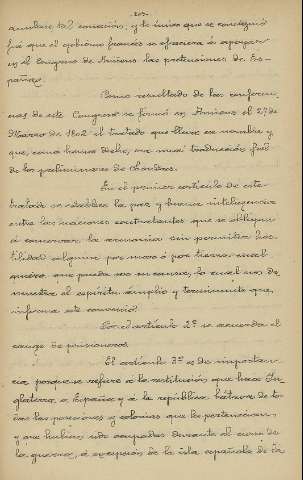 -203-
cumbre tal concesión, y lo único que se consiguió
fué que el gobierno francés se ofreciera á apoyar
en el Congreso de Amiens las pretensiones de Es-
pañoza.
Como resultado de las conferen-
cias de este Congreso se firmó en Amiens el 27 de
Marzo de 1802 el tratado que lleva su nombre y
que, como hemos dicho, era una traducción fiel
de los preliminares de Londres.
En el primer artículo de este
tratado se establece la paz y buena inteligencia
entre las naciones contratantes que se obligan
á conservar la armonía sin permitir hos-
tilidad alguna por mar ó por tierra, cual
quiera que pueda ser su causa, lo cual nos de-
muestra el espíritu amplio y terminante que
informa este convenio.
Por el artículo 2º se acuerda el
cange de prisioneros.
El artículo 3º es de importan-
cia porque se refiere á la restitución que hace In-
glaterra, á España y á la república bátava de to-
das las posesiones y colonias que les pertenecieran
y que hubiesen sido ocupadas durante el curso de
la guerra, á excepción de la isla española de la